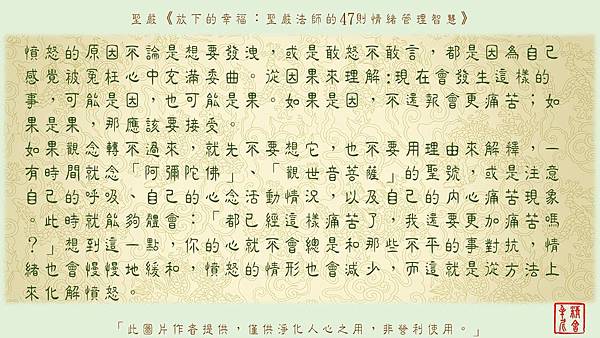 聖嚴《放下的幸福：聖嚴法師的47則情緒管理智慧》
憤怒的原因不論是想要發洩，或是敢怒不敢言，都是因為自己
感覺被冤枉心中充滿委曲。從因果來理解:現在會發生這樣的
事，可能是因，也可能是果。如果是因，不還報會更痛苦；如
果是果，那應該要接受。
如果觀念轉不過來，就先不要想它，也不要用理由來解釋，一
有時間就念「阿彌陀佛」、「觀世音菩薩」的聖號，或是注意
自己的呼吸、自己的心念活動情況，以及自己的內心痛苦現象
。此時就能夠體會：「都已經這樣痛苦了，我還要更加痛苦嗎
？」想到這一點，你的心就不會總是和那些不平的事對抗，情
緒也會慢慢地緩和，憤怒的情形也會減少，而這就是從方法上
來化解憤怒。
「此圖片作者提供，僅供淨化人心之用，非營利使用。」